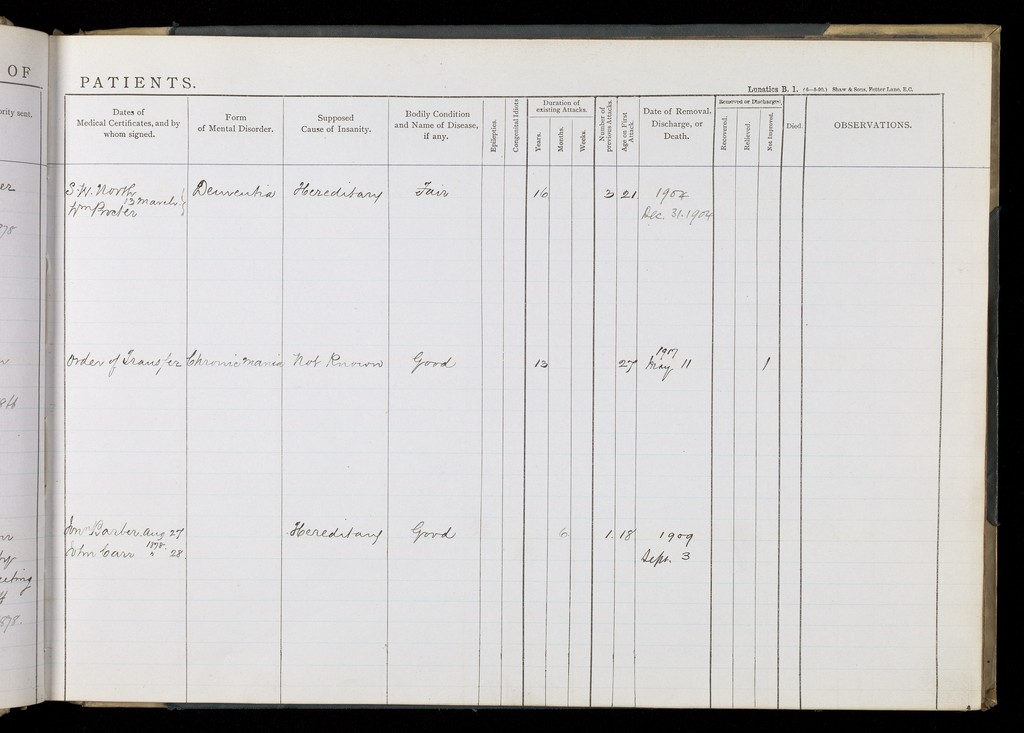 OF
PATIENTS.
Lunatics B. 1. (6—8-90.) Shaw & Sons, Fetter Lane, E.C.
ority sent.
Dates of
Medical Certificates, and by
whom signed.
Form
of Mental Disorder.
Supposed
Cause of Insanity.
Bodily Condition
and Name of Disease,
if any.
Epileptics.
Congenital Idiots
Duration of
existing Attacks.
Years.
Months.
Weeks.
Number of
previous Attacks.
Age on First
Attack.
Date of Removal,
Discharge, or
Death.
Removed or Discharged
Recovered.
Relieved.
Not Improved.
Died.
OBSERVATIONS.
S. W. North
13 March
Wm Procter
Dementia
Hereditary
Fair
16
3
21
1904
Dec. 31. 1904
878
Order of Transfer
Chronic Mania
Not Known
Good
13
27
1907
May 11
1
Barber. Aug 27
1878
John Carr " 28
Hereditary
Good
6
1.
18
1909
Sept. 3
878.